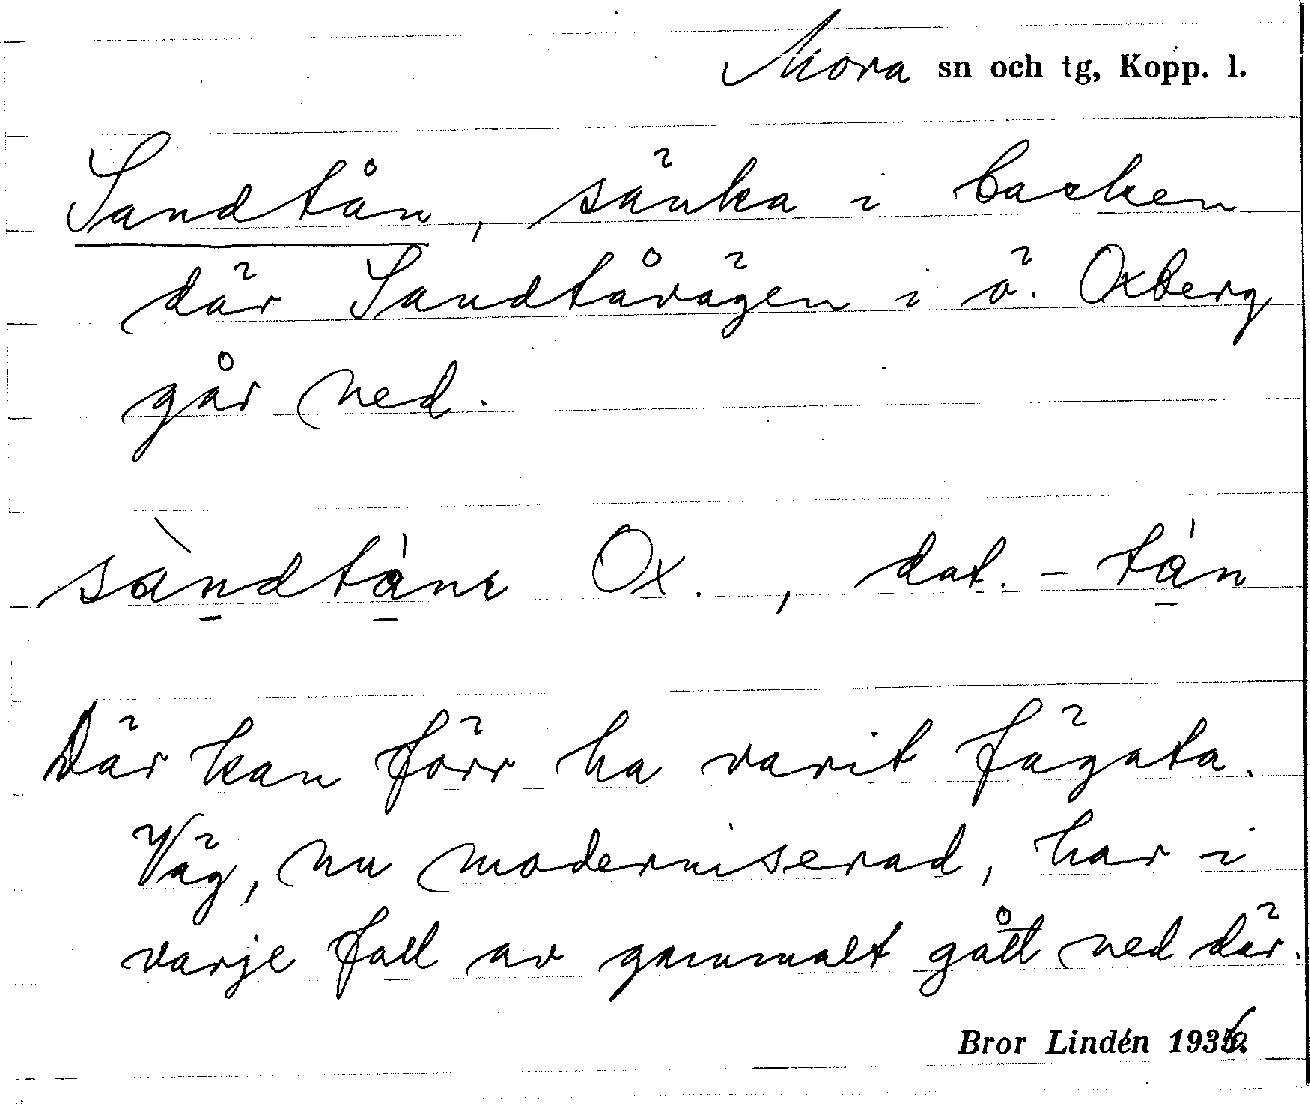 Mora sn och tg, Kopp. l.
Sandtån, sänka i backen
där Sandtåvägen i ö. Oxberg
går ned.
sàndtáne Ox., dat. -tán
Där kan förr ha varit fägata.
Väg, nu moderniserad, har i
varje fall av gammalt gått ned där.
Bror Lindén 1936.